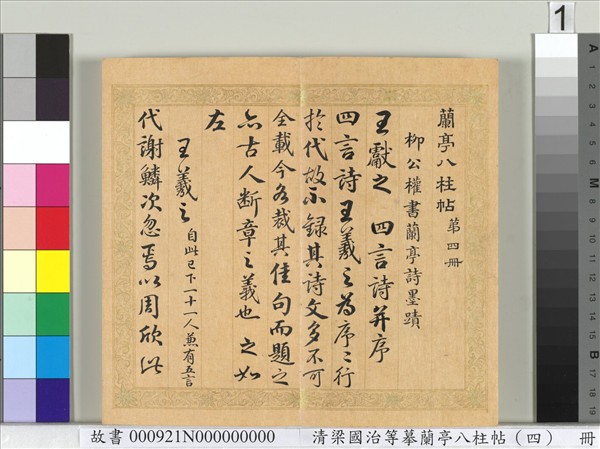 1
蘭亭八柱帖 第四冊
柳公權書蘭亭詩墨蹟
王獻之 四言詩并序
四言詩王羲之為序序行
於代故不錄其詩文多不可
全載今各裁其佳句而題之
亦古人斷章之義也 之如
左
王羲之 自此已下一十一人兼有五言
代謝鱗次忽焉以周欣此
故書 000921N000000000 清梁國治等摹蘭亭八柱帖(四) 冊
A 1 2 3 4 5 6 7 M 8 9 10 11 12 13 14 15 B 17 18 19